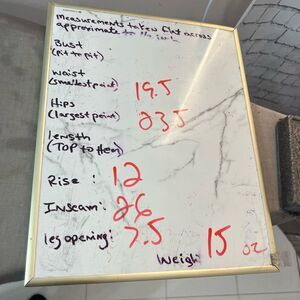 Measurements taken flat across
approximate to ½ inch
Bust
(Pit to pit)
Waist
(smallest point) 19.5
Hips
(largest point) 23.5
length
(TOP to Hem)
Rise : 12
Inseam: 26
leg opening: 7.5
Weigh 15 oz